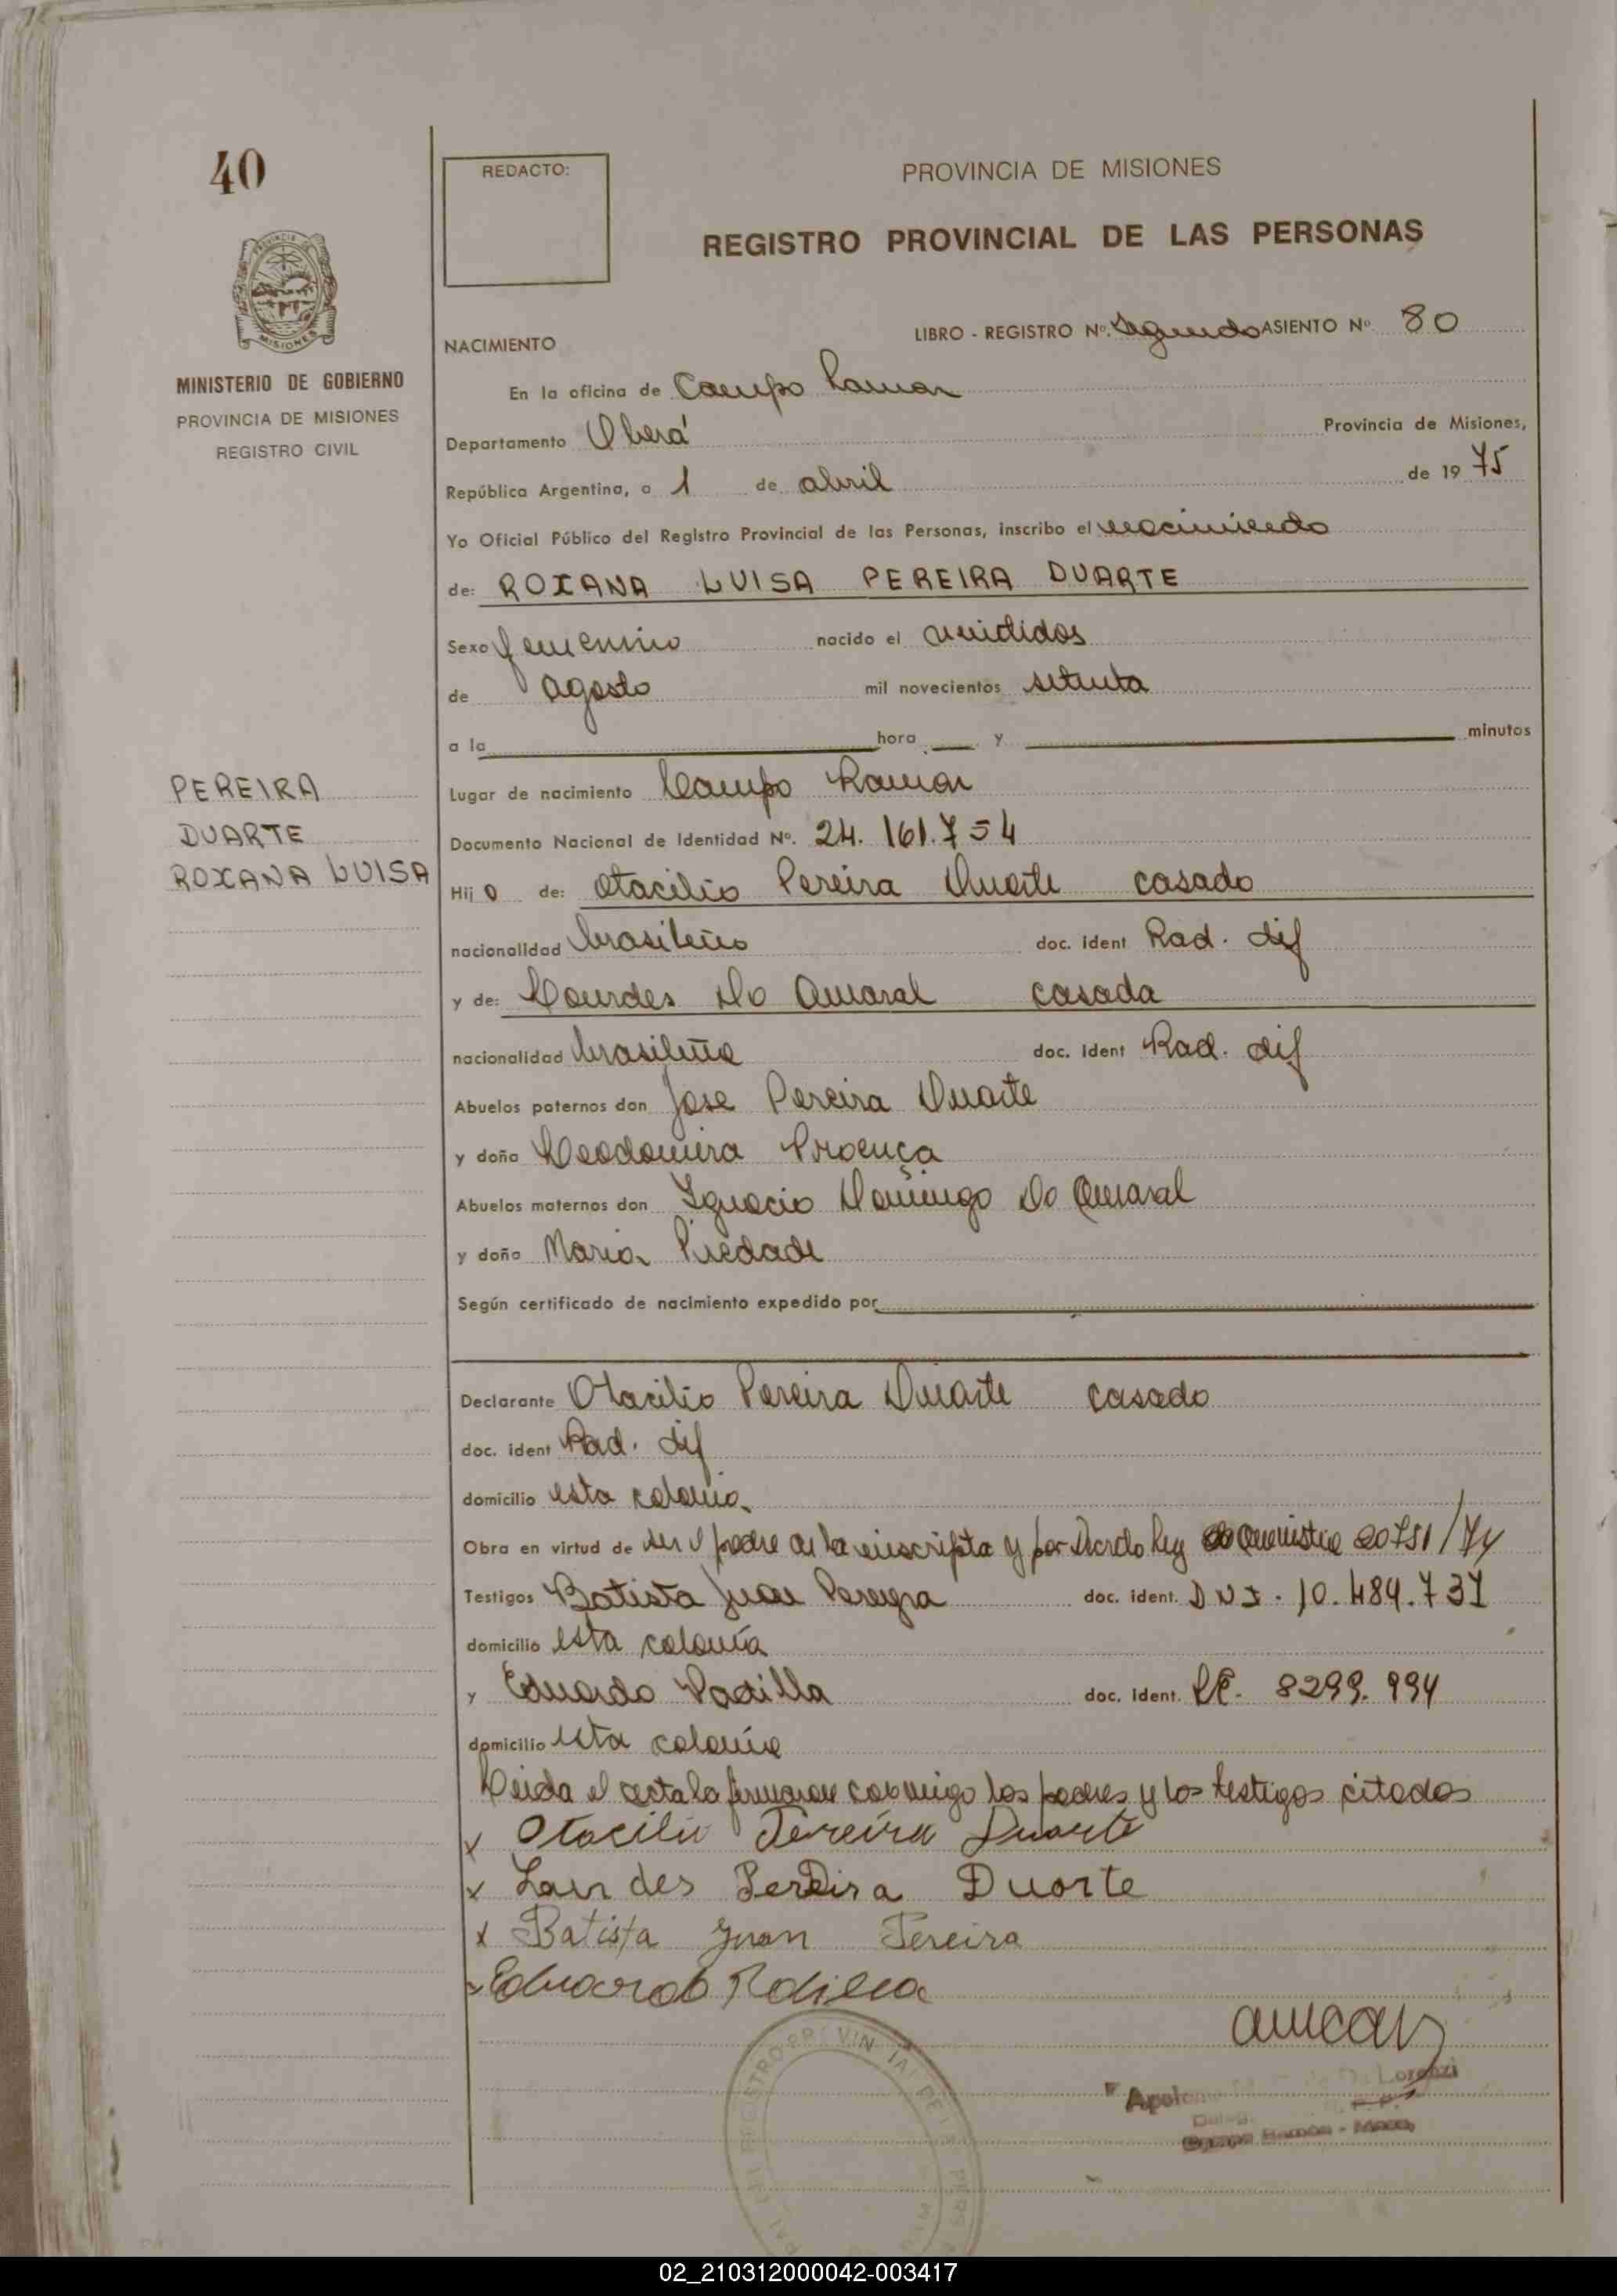 40
REDACTO:
PROVINCIA DE MISIONES
REGISTRO PROVINCIAL DE LAS PERSONAS
PROVINCIA DE
MISIONES
MINISTERIO DE GOBIERNO
PROVINCIA DE MISIONES
REGISTRO CIVIL
NACIMIENTO
LIBRO - REGISTRO Nº. Segundo ASIENTO Nº. 80
En la oficina de Campo Ramon
Departamento Oberá Provincia de Misiones,
República Argentina, a 1 de abril de 1975
Yo Oficial Público del Registro Provincial de las Personas, inscribo el nacimiento
de: ROXANA LUISA PEREIRA DUARTE
Sexo femenino nacido el veintidos
de agosto mil novecientos setenta
a la hora y minutos
PEREIRA
DUARTE
ROXANA LUISA
Lugar de nacimiento Campo Ramon
Documento Nacional de Identidad Nº. 24.161.754
Hijo de: Otacilio Pereira Duarte casado
nacionalidad brasileño doc. ident Rad. dif
y de: Lourdes Do Amaral casada
nacionalidad brasileña doc. ident Rad. dif
Abuelos paternos don Jose Pereira Duarte
y doña Deodomira Proença
Abuelos maternos don Ignacio Domingo Do Amaral
y doña Maria Piedade
Según certificado de nacimiento expedido por
Declarante Otacilio Pereira Duarte casado
doc. ident Rad. dif
domicilio esta colonia
Obra en virtud de ser el padre de la inscripta y por Ley Amnistia 20751/74
Testigos Batista Juan Pereyra doc. ident. DNI. 10.484.737
domicilio esta colonia
y Eduardo Padilla doc. ident. LE. 8299.994
domicilio esta colonia
Leida el acta la firmaron conmigo los padres y los testigos citados
x Otacilio Pereira Duarte
x Lourdes Pereira Duarte
x Batista Juan Pereira
Eduardo Padilla
Lorenzi
Campo Ramón - Mnes.
02_210312000042-003417